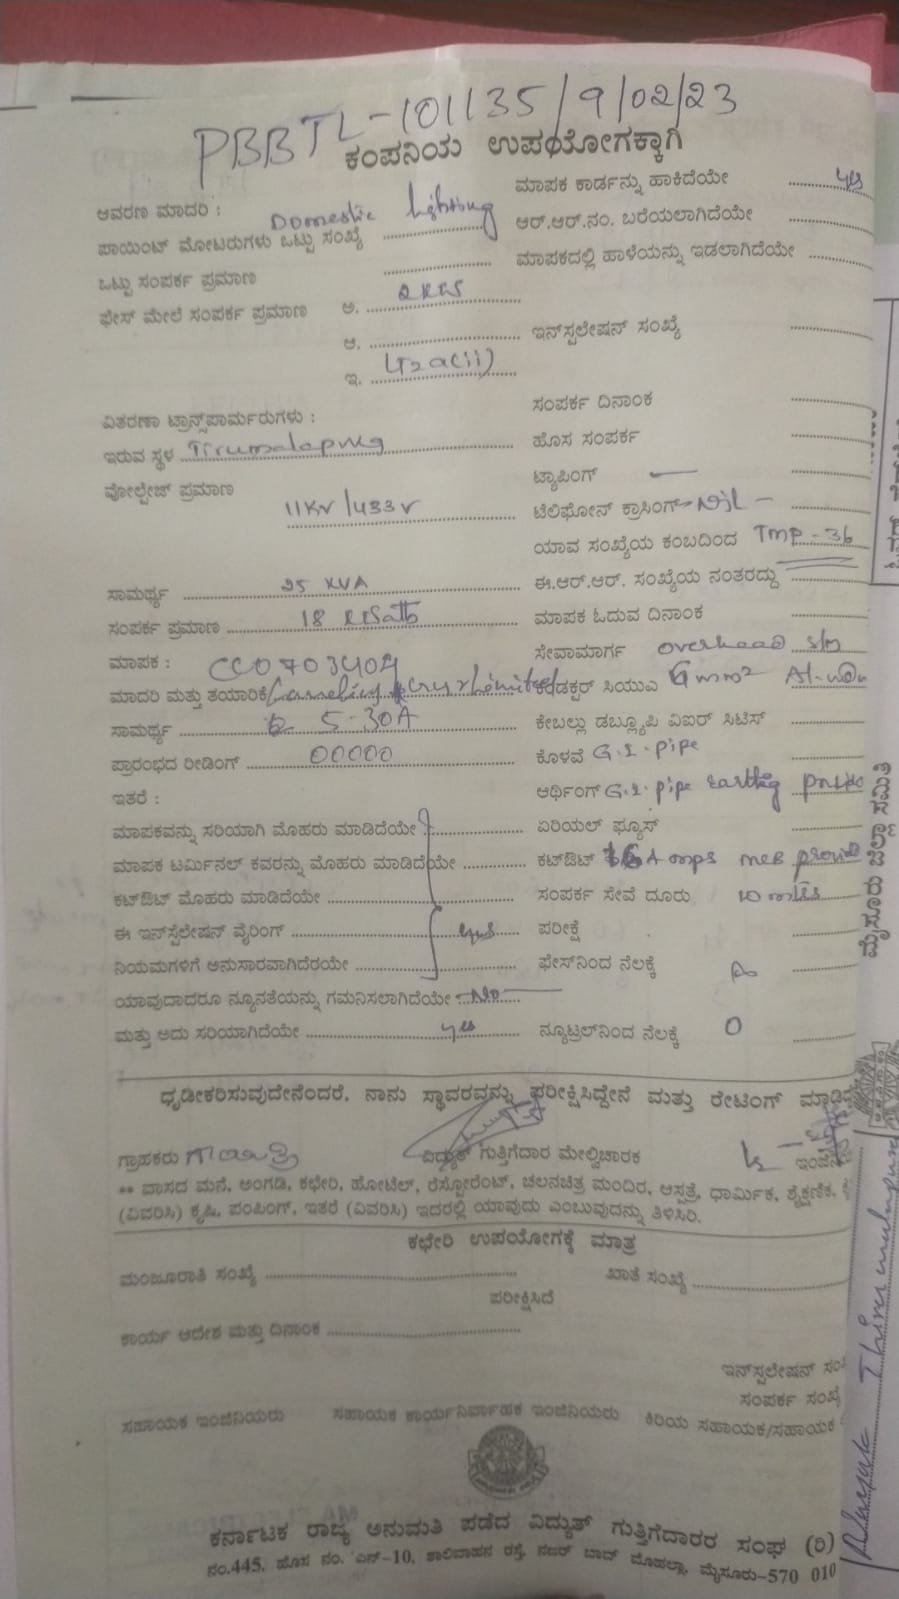 PBBTL-101135/9/02/23
ಕಂಪನಿಯ ಉಪಯೋಗಕ್ಕಾಗಿ
ಆವರಣ ಮಾದರಿ : Domestic lighting
ಪಾಯಿಂಟ್ ಮೋಟರುಗಳು ಒಟ್ಟು ಸಂಖ್ಯೆ
ಒಟ್ಟು ಸಂಪರ್ಕ ಪ್ರಮಾಣ
ಫೇಸ್ ಮೇಲೆ ಸಂಪರ್ಕ ಪ್ರಮಾಣ ಅ.
ಆ.
ಇ.
ವಿತರಣಾ ಟ್ರಾನ್ಸ್‌ಪಾರ್ಮರುಗಳು :
ಇರುವ ಸ್ಥಳ
ವೋಲ್ಟೇಜ್ ಪ್ರಮಾಣ
11KV/433V
ಸಾಮರ್ಥ್ಯ 25 KVA
ಸಂಪರ್ಕ ಪ್ರಮಾಣ 18
ಮಾಪಕ : CC0703404
ಮಾದರಿ ಮತ್ತು ತಯಾರಿಕೆ
ಸಾಮರ್ಥ್ಯ 5-30A
ಪ್ರಾರಂಭದ ರೀಡಿಂಗ್ 00000
ಇತರೆ :
ಮಾಪಕವನ್ನು ಸರಿಯಾಗಿ ಮೊಹರು ಮಾಡಿದೆಯೇ
ಮಾಪಕ ಟರ್ಮಿನಲ್ ಕವರನ್ನು ಮೊಹರು ಮಾಡಿದೆಯೇ
ಕಟ್‌ಔಟ್ ಮೊಹರು ಮಾಡಿದೆಯೇ
ಈ ಇನ್‌ಸ್ಪಲೇಷನ್ ವೈರಿಂಗ್ yes
ನಿಯಮಗಳಿಗೆ ಅನುಸಾರವಾಗಿದೆರಯೇ
ಯಾವುದಾದರೂ ನ್ಯೂನತೆಯನ್ನು ಗಮನಿಸಲಾಗಿದೆಯೇ No
ಮತ್ತು ಅದು ಸರಿಯಾಗಿದೆಯೇ yes
ಮಾಪಕ ಕಾರ್ಡನ್ನು ಹಾಕಿದೆಯೇ yes
ಆರ್.ಆರ್.ನಂ. ಬರೆಯಲಾಗಿದೆಯೇ
ಮಾಪಕದಲ್ಲಿ ಹಾಳೆಯನ್ನು ಇಡಲಾಗಿದೆಯೇ
ಇನ್‌ಸ್ಪಲೇಷನ್ ಸಂಖ್ಯೆ
ಸಂಪರ್ಕ ದಿನಾಂಕ
ಹೊಸ ಸಂಪರ್ಕ
ಟ್ಯಾಪಿಂಗ್ —
ಟೆಲಿಫೋನ್ ಕ್ರಾಸಿಂಗ್ -Nil-
ಯಾವ ಸಂಖ್ಯೆಯ ಕಂಬದಿಂದ TMP-36
ಈ.ಆರ್.ಆರ್. ಸಂಖ್ಯೆಯ ನಂತರದ್ದು
ಮಾಪಕ ಓದುವ ದಿನಾಂಕ
ಸೇವಾಮಾರ್ಗ overhead
ಕಂಡಕ್ಟರ್ ಸಿಯುಎ 6mm²
ಕೇಬಲ್ಲು ಡಬ್ಲ್ಯೂಪಿ ವಿಐರ್ ಸಿಟಿಸ್
ಕೊಳವೆ G.I. pipe
ಆರ್ಥಿಂಗ್ G.I. pipe earthing
ಏರಿಯಲ್ ಫ್ಯೂಸ್
ಕಟ್‌ಔಟ್ 16 Amps
ಸಂಪರ್ಕ ಸೇವೆ ದೂರು
ಪರೀಕ್ಷೆ
ಫೇಸ್‌ನಿಂದ ನೆಲಕ್ಕೆ
ನ್ಯೂಟ್ರಲ್‌ನಿಂದ ನೆಲಕ್ಕೆ 0
ಧೃಡೀಕರಿಸುವುದೇನೆಂದರೆ, ನಾನು ಸ್ಥಾವರವನ್ನು ಪರೀಕ್ಷಿಸಿದ್ದೇನೆ ಮತ್ತು ರೇಟಿಂಗ್
ಗ್ರಾಹಕರು ವಿದ್ಯುತ್ ಗುತ್ತಿಗೆದಾರ ಮೇಲ್ವಿಚಾರಕ
** ವಾಸದ ಮನೆ, ಅಂಗಡಿ, ಕಛೇರಿ, ಹೋಟೆಲ್, ರೆಸ್ಟೋರೆಂಟ್, ಚಲನಚಿತ್ರ ಮಂದಿರ, ಆಸ್ಪತ್ರೆ, ಧಾರ್ಮಿಕ, ಶೈಕ್ಷಣಿಕ,
(ವಿವರಿಸಿ) ಕೃಷಿ, ಪಂಪಿಂಗ್, ಇತರೆ (ವಿವರಿಸಿ) ಇದರಲ್ಲಿ ಯಾವುದು ಎಂಬುವುದನ್ನು ತಿಳಿಸಿರಿ.
ಕಛೇರಿ ಉಪಯೋಗಕ್ಕೆ ಮಾತ್ರ
ಮಂಜೂರಾತಿ ಸಂಖ್ಯೆ ಖಾತೆ ಸಂಖ್ಯೆ
ಪರೀಕ್ಷಿಸಿದೆ
ಕಾರ್ಯ ಆದೇಶ ಮತ್ತು ದಿನಾಂಕ
ಇನ್‌ಸ್ಪಲೇಷನ್
ಸಂಪರ್ಕ ಸಂಖ್ಯೆ
ಸಹಾಯಕ ಇಂಜಿನಿಯರು ಸಹಾಯಕ ಕಾರ್ಯನಿರ್ವಾಹಕ ಇಂಜಿನಿಯರು ಕಿರಿಯ ಸಹಾಯಕ/ಸಹಾಯಕ
ಕರ್ನಾಟಕ ರಾಜ್ಯ ಅನುಮತಿ ಪಡೆದ ವಿದ್ಯುತ್ ಗುತ್ತಿಗೆದಾರರ ಸಂಘ (ರಿ)
ನಂ.445, ಹೊಸ ನಂ. ಎನ್-10, ಶಾಲಿವಾಹನ ರಸ್ತೆ, ನಜರ್ ಬಾದ್ ಮೊಹಲ್ಲಾ, ಮೈಸೂರು-570 010
ಮೈಸೂರು ಜಿಲ್ಲಾ ಸಮಿತಿ